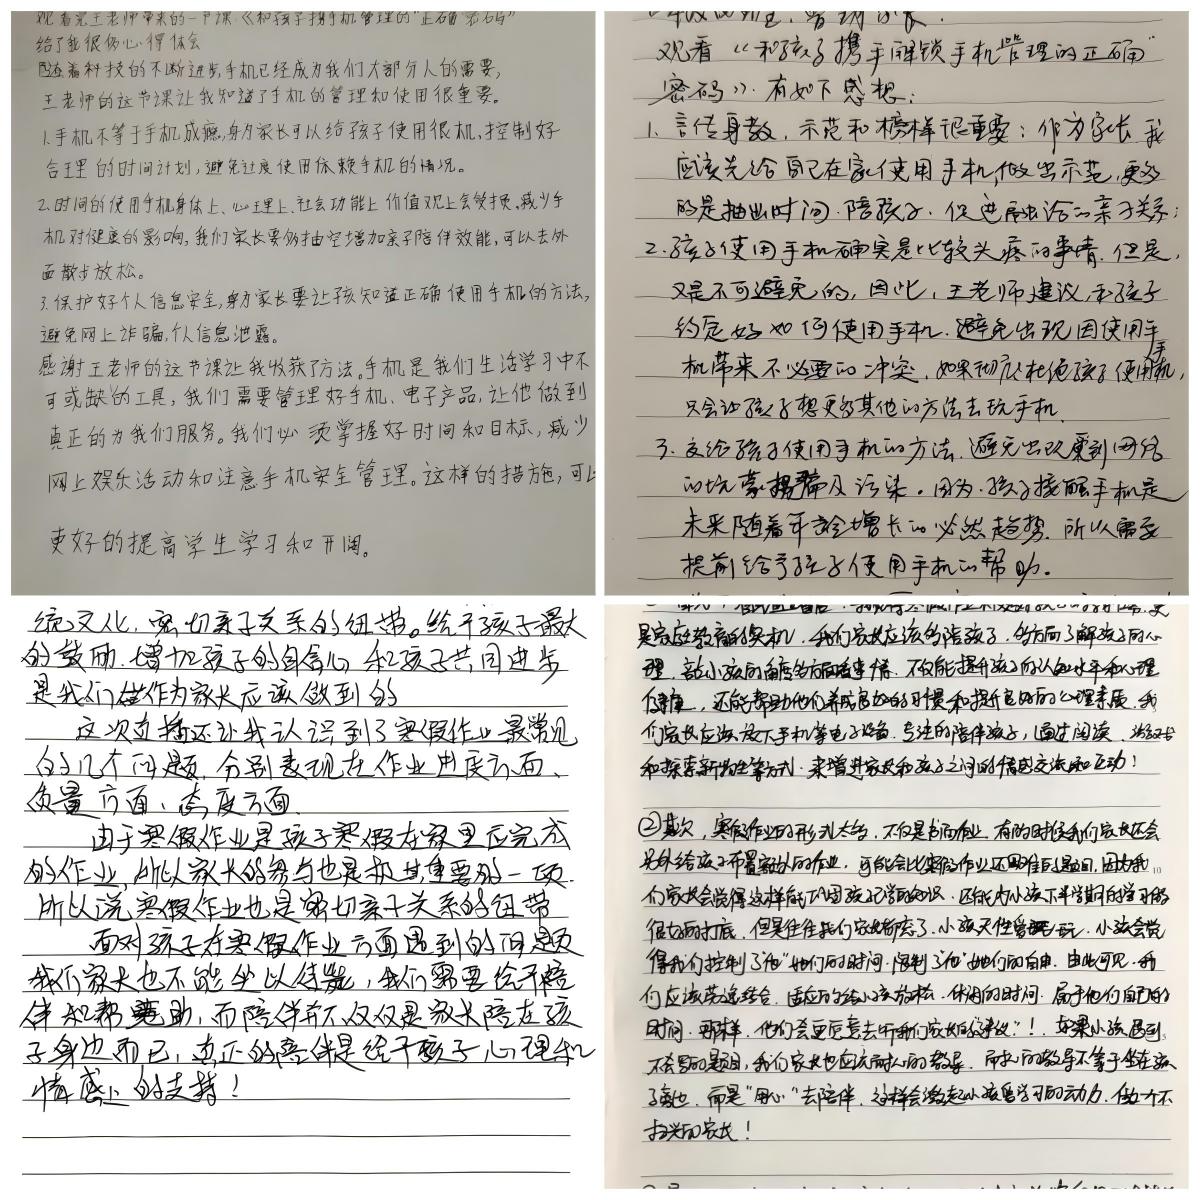 观看完王老师带来的一节课《和孩子携手机管理的"正确密码"
给了我很多心得体会
随着科技的不断进步,手机已经成为我们大部分人的需要,
王老师的这节课让我知道了手机的管理和使用很重要。
1.手机不等于手机成瘾,身为家长可以给孩子使用很机,控制好
合理的时间计划,避免过度使用依赖手机的情况。
2.时间的使用手机身体上、心理上、社会功能上价值观上会受损,减少手
机对健康的影响,我们家长要多抽空增加亲子陪伴效能,可以去外
面散步放松。
3.保护好个人信息安全,身为家长要让孩知道正确使用手机的方法,
避免网上诈骗,个人信息泄露。
感谢王老师的这节课让我收获了方法。手机是我们生活学习中不
可或缺的工具,我们需要管理好手机、电子产品,让他做到
真正的为我们服务。我们必须掌握好时间和目标,减少
网上娱乐活动和注意手机安全管理。这样的措施,可以
更好的提高学生学习和开阔。
观看《和孩子携手解锁手机管理的"正确"
密码》有如下感想:
1.言传身教,示范和榜样很重要:作为家长我
应该先给自己在家使用手机,做出示范,更多
的是抽出时间.陪孩子.促进融洽的亲子关系;
2.孩子使用手机确实是比较头疼的事情.但是,
又是不可避免的,因此,王老师建议,和孩子
约定好如何使用手机.避免出现因使用手
机带来不必要的冲突,如果彻底杜绝孩子使用手机,
只会让孩子想更多其他的方法去玩手机.
3.交给孩子使用手机的方法.避免出现受到网络
的坑蒙拐骗及污染.因为.孩子接触手机是
未来随着年龄增长的必然趋势.所以需要
提前给予孩子使用手机的帮助。
统文化,密切亲子关系的纽带。给予孩子最大
的鼓励.增加孩子的自信心和孩子共同进步
是我们做作为家长应该做到的
这次直播还让我认识到了寒假作业最常见
的几个问题.分别表现在作业进度方面、
质量方面,态度方面.
由于寒假作业是孩子寒假在家里应完成
的作业,所以家长的参与也是极其重要的一项.
所以说寒假作业也是密切亲子关系的纽带
面对孩子在寒假作业方面遇到的问题
我们家长也不能坐以待毙,我们需要给予陪
伴和帮助,而陪伴并不仅仅是家长陪在孩
子身边而已,真正的陪伴是给予孩子心理和
情感上的支持!
是家庭教育的契机,我们家长应该多陪孩子,多方面了解孩子的心
理,站小孩的角度多方面看事情.不仅能提升孩子的认知水平和心理
健康,还能帮助他们养成良好的习惯和提升良好的心理素质,我
们家长应该放下手机等电子设备.专注的陪伴孩子,通过阅读、
和探索新物生等方式.来增进家长和孩子之间的情感交流和互动!
②其次,寒假作业的形式太多,不仅是书面作业,有的时候我们家长还会
另外给孩子布置额外的作业,可能会比寒假作业还要难的题目,因为我
们家长会觉得这样能巩固孩子已学的知识,还能为小孩下半学期的学习做
很好的打底,但是往往我们家长忽略了,小孩天性爱玩,小孩会觉
得我们控制了他"她们的时间.限制了他"她们的自由.由此可见.我
们应该劳逸结合.适应的给小孩放松.休闲的时间.属于他们自己的
时间.那样,他们会更愿意去听我们家长的"建议"!.如果小孩遇到
不会写的题目,我们家长也应该耐心的教导.而耐心的教导不等于坐在孩
子旁边.而是"用心"去陪伴.这样会激起小孩学习的动力.做一个不
扫兴的家长!